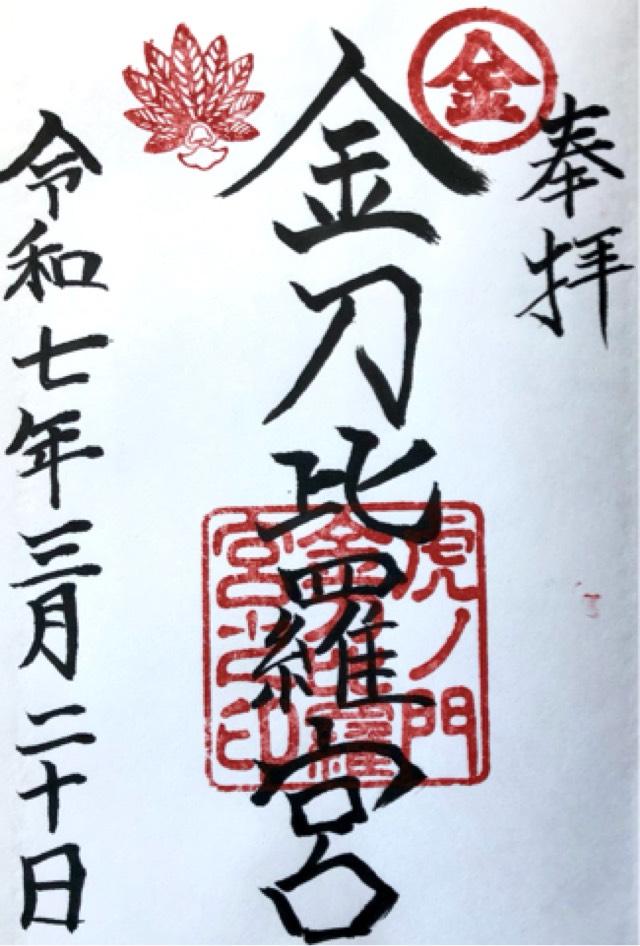 奉拝
金
金刀比羅宮
虎ノ門
金刀比羅
宮之印
令和七年三月二十日